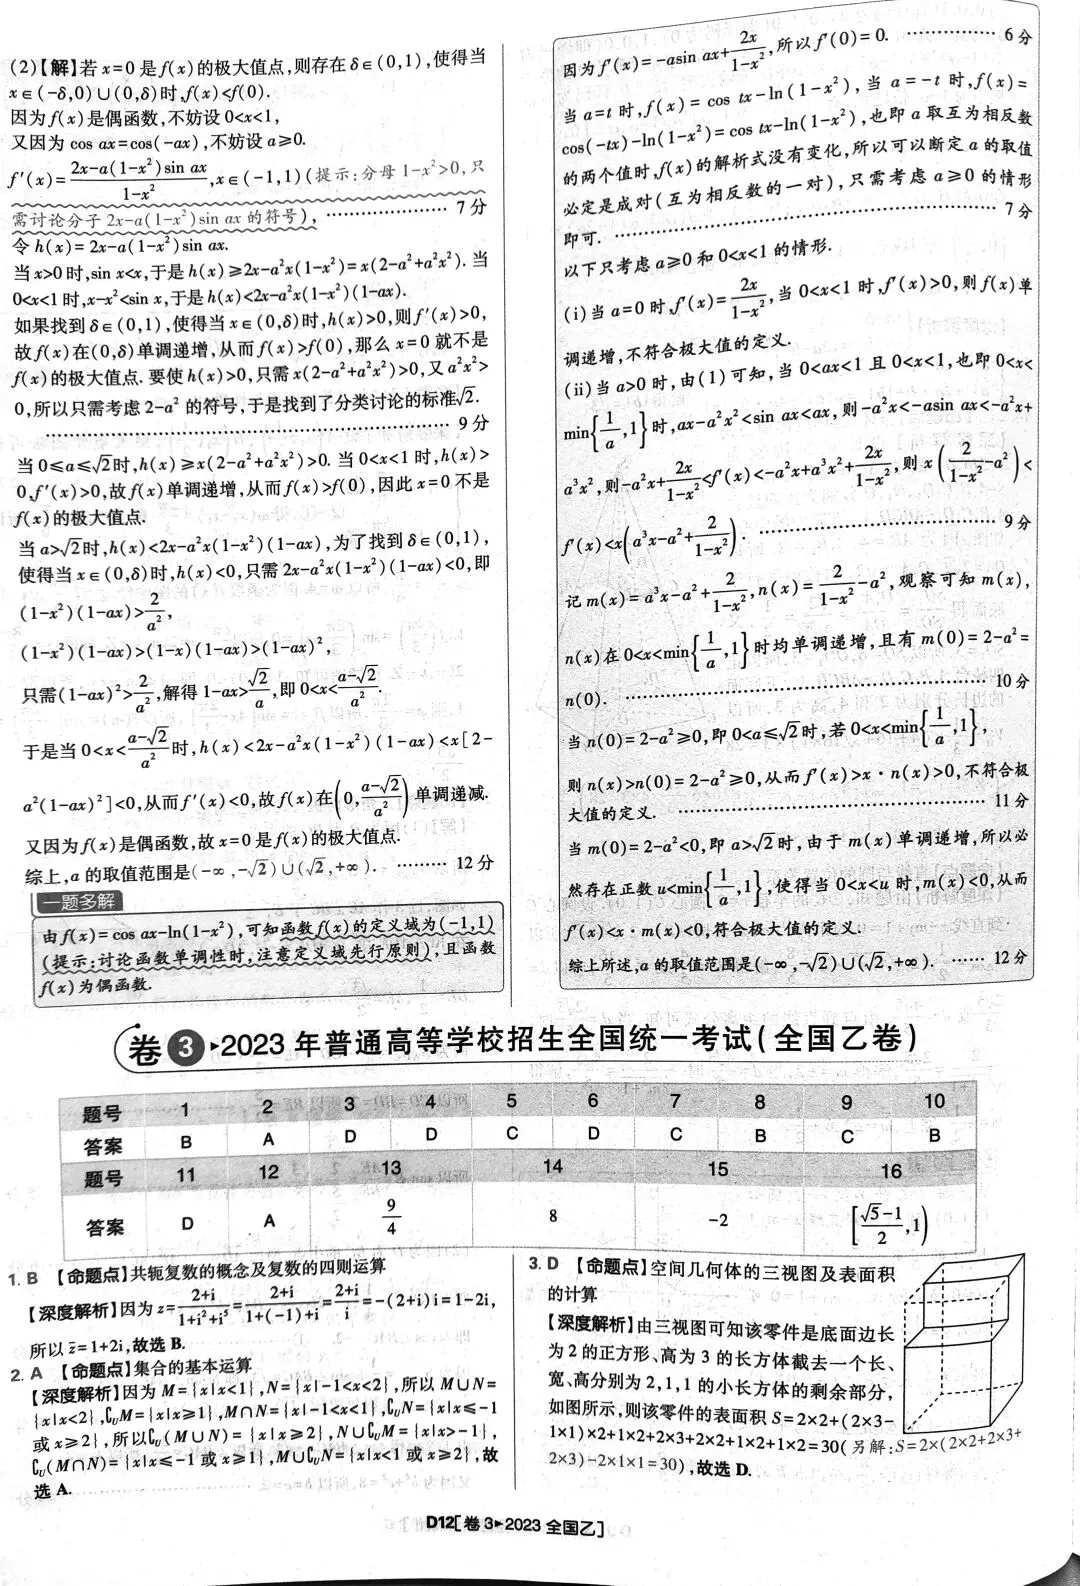 (2)【解】若 x=0 是 f(x) 的极大值点,则存在 δ∈(0,1),使得当
x∈(-δ,0)∪(0,δ)时,f(x)<f(0).
因为 f(x) 是偶函数,不妨设 0<x<1,
又因为 cos ax=cos(-ax),不妨设 a≥0.
f'(x)=\frac{2x-a(1-x²)sin ax}{1-x²},x∈(-1,1)(提示:分母 1-x²>0,只
需讨论分子 2x-a(1-x²)sin ax 的符号), ………………… 7 分
令 h(x)=2x-a(1-x²)sin ax.
当 x>0 时,sin x<x,于是 h(x)≥2x-a²x(1-x²)=x(2-a²+a²x²). 当
0<x<1 时,x-x²<sin x,于是 h(x)<2x-a²x(1-x²)(1-ax).
如果找到 δ∈(0,1),使得当 x∈(0,δ)时,h(x)>0,则 f'(x)>0,
故 f(x)在(0,δ)单调递增,从而 f(x)>f(0),那么 x=0 就不是
f(x)的极大值点. 要使 h(x)>0,只需 x(2-a²+a²x²)>0,又 a²x²>
0,所以只需考虑 2-a² 的符号,于是找到了分类讨论的标准√2.
………………………………………………… 9 分
当 0≤a≤√2时,h(x)≥x(2-a²+a²x²)>0. 当 0<x<1 时,h(x)>
0,f'(x)>0,故 f(x)单调递增,从而 f(x)>f(0),因此 x=0 不是
f(x)的极大值点.
当 a>√2时,h(x)<2x-a²x(1-x²)(1-ax),为了找到 δ∈(0,1),
使得当 x∈(0,δ)时,h(x)<0,只需 2x-a²x(1-x²)(1-ax)<0,即
(1-x²)(1-ax)>\frac{2}{a²},
(1-x²)(1-ax)>(1-x)(1-ax)>(1-ax)²,
只需(1-ax)²>\frac{2}{a²},解得 1-ax>\frac{√2}{a},即 0<x<\frac{a-√2}{a²}.
于是当 0<x<\frac{a-√2}{a²}时,h(x)<2x-a²x(1-x²)(1-ax)<x[2-
a²(1-ax)²]<0,从而 f'(x)<0,故 f(x)在(0,\frac{a-√2}{a²})单调递减.
又因为 f(x)是偶函数,故 x=0 是 f(x)的极大值点.
综上,a 的取值范围是(-∞,-√2)∪(√2,+∞). ……… 12 分
一题多解
由 f(x)=cos ax-ln(1-x²),可知函数 f(x)的定义域为(-1,1)
(提示:讨论函数单调性时,注意定义域先行原则),且函数
f(x)为偶函数.
因为 f'(x)=-asin ax+\frac{2x}{1-x²},所以 f'(0)=0. ……………… 6 分
当 a=t 时,f(x)=cos tx-ln(1-x²),当 a=-t 时,f(x)=
cos(-tx)-ln(1-x²)=cos tx-ln(1-x²),也即 a 取互为相反数
的两个值时,f(x)的解析式没有变化,所以可以断定 a 的取值
必定是成对(互为相反数的一对),只需考虑 a≥0 的情形
即可. ………………………………………………… 7 分
以下只考虑 a≥0 和 0<x<1 的情形.
(i)当 a=0 时,f'(x)=\frac{2x}{1-x²},当 0<x<1 时,f'(x)>0,则 f(x)单
调递增,不符合极大值的定义.
(ii)当 a>0 时,由(1)可知,当 0<ax<1 且 0<x<1,也即 0<x<
min{\frac{1}{a},1}时,ax-a²x²<sin ax<ax,则-a²x<-asin ax<-a²x+
a³x²,则-a²x+\frac{2x}{1-x²}<f'(x)<-a²x+a³x²+\frac{2x}{1-x²},则 x(\frac{2}{1-x²}-a²)<
f'(x)<x(a³x-a²+\frac{2}{1-x²}). ………………………………… 9 分
记 m(x)=a³x-a²+\frac{2}{1-x²},n(x)=\frac{2}{1-x²}-a²,观察可知 m(x),
n(x)在 0<x<min{\frac{1}{a},1}时均单调递增,且有 m(0)=2-a²=
n(0). ………………………………………………… 10 分
当 n(0)=2-a²≥0,即 0<a≤√2时,若 0<x<min{\frac{1}{a},1},
则 n(x)>n(0)=2-a²≥0,从而 f'(x)>x·n(x)>0,不符合极
大值的定义. ………………………………………… 11 分
当 m(0)=2-a²<0,即 a>√2时,由于 m(x)单调递增,所以必
然存在正数 u<min{\frac{1}{a},1},使得当 0<x<u 时,m(x)<0,从而
f'(x)<x·m(x)<0,符合极大值的定义.
综上所述,a 的取值范围是(-∞,-√2)∪(√2,+∞). …… 12 分
卷 3 ▸2023 年普通高等学校招生全国统一考试(全国乙卷)
题号 1 2 3 4 5 6 7 8 9 10
答案 B A D D C D C B C B
题号 11 12 13 14 15 16
答案 D A \frac{9}{4} 8 -2 [\frac{√5-1}{2},1)
1. B 【命题点】共轭复数的概念及复数的四则运算
【深度解析】因为 z=\frac{2+i}{1+i²+i⁵}=\frac{2+i}{1+(-1)+i}=\frac{2+i}{i}=-(2+i)i=1-2i,
所以 z̄=1+2i,故选 B.
2. A 【命题点】集合的基本运算
【深度解析】因为 M={x|x<1},N={x|-1<x<2},所以 M∪N=
{x|x<2},∁UM={x|x≥1},M∩N={x|-1<x<1},∁UN={x|x≤-1
或 x≥2},所以∁U(M∪N)={x|x≥2},N∪∁UM={x|x>-1},
∁U(M∩N)={x|x≤-1 或 x≥1},M∪∁UN={x|x<1 或 x≥2},故
选 A.
3. D 【命题点】空间几何体的三视图及表面积
的计算
【深度解析】由三视图可知该零件是底面边长
为 2 的正方形、高为 3 的长方体截去一个长、
宽、高分别为 2,1,1 的小长方体的剩余部分,
如图所示,则该零件的表面积 S=2×2+(2×3-
1×1)×2+1×2+2×3+2×2+1×2+1×2=30(另解:S=2×(2×2+2×3+
2×3)-2×1×1=30),故选 D.
D12[卷 3▸2023 全国乙]